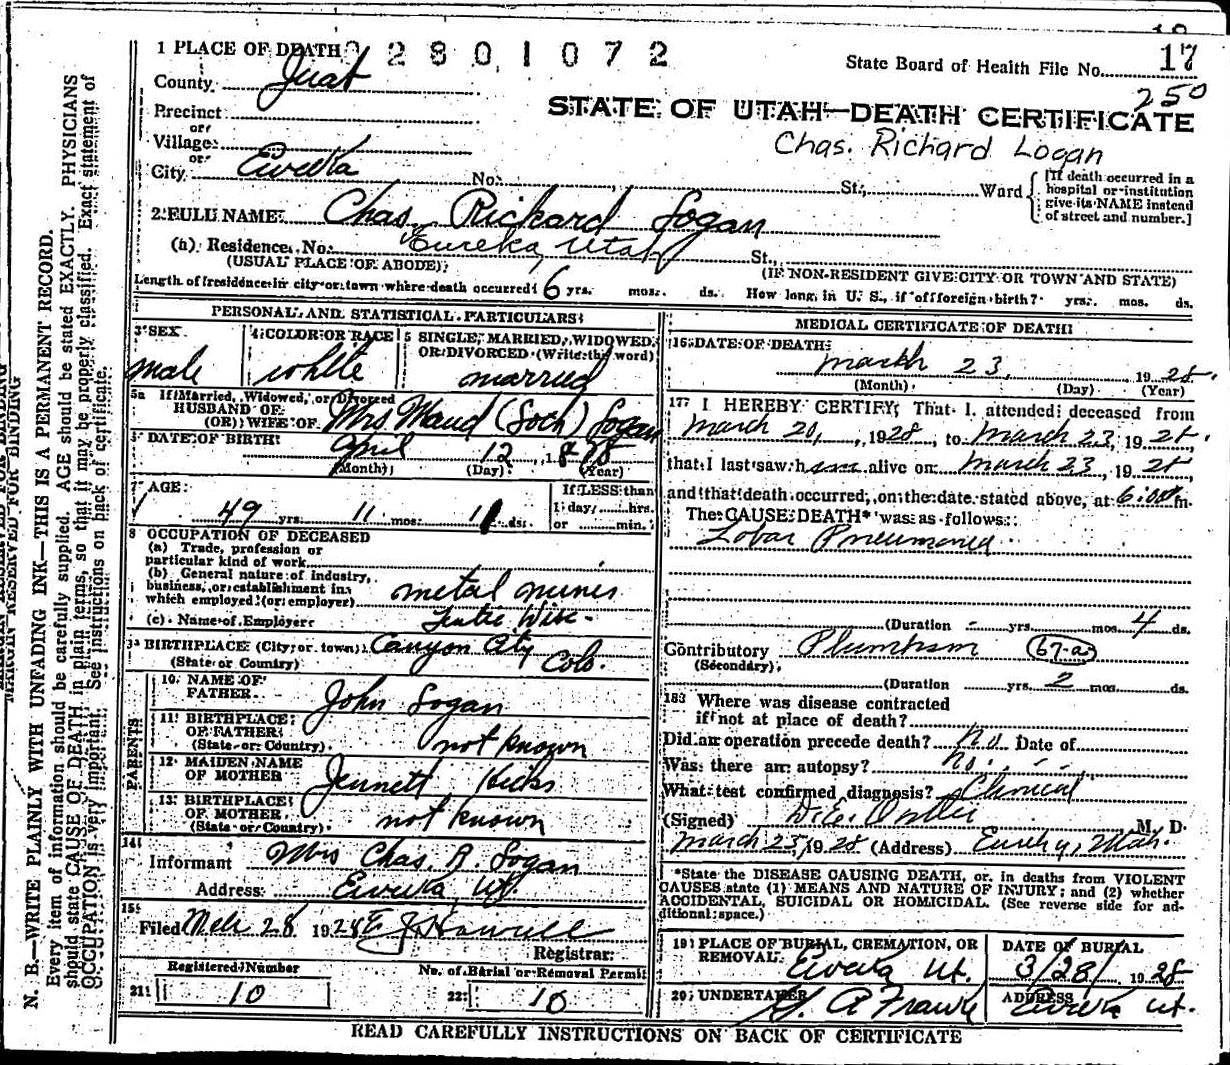 1 PLACE OF DEATH 2 8 0 1 0 7 2
State Board of Health File No. 17
250
County Juab
STATE OF UTAH—DEATH CERTIFICATE
Precinct
or
Village
or
Chas. Richard Logan
City Eureka No. St., Ward
[If death occurred in a hospital or institution give its NAME instead of street and number.]
2 FULL NAME Chas. Richard Logan
(a) Residence, No. Eureka, Utah St.,
(USUAL PLACE OF ABODE)
(IF NON-RESIDENT GIVE CITY OR TOWN AND STATE)
Length of residence in city or town where death occurred 6 yrs. mos. ds. How long in U. S., if of foreign birth? yrs. mos. ds.
PERSONAL AND STATISTICAL PARTICULARS
3 SEX
male
4 COLOR OR RACE
white
5 SINGLE, MARRIED, WIDOWED OR DIVORCED (Write the word)
married
5a If Married, Widowed, or Divorced
HUSBAND OF
(OR) WIFE OF Mrs Maud (Soch) Logan
DATE OF BIRTH April 12, 1878
(Month) (Day) (Year)
7 AGE
49 yrs. 11 mos. 11 ds.
If LESS than
1 day, hrs.
or min.
8 OCCUPATION OF DECEASED
(a) Trade, profession or
particular kind of work
(b) General nature of industry,
business, or establishment in
which employed (or employer) metal mines
(c) Name of Employer
BIRTHPLACE (City or town) Canyon City
(State or Country) Colo.
PARENTS
10 NAME OF
FATHER John Logan
11 BIRTHPLACE
OF FATHER
(State or Country) not known
12 MAIDEN NAME
OF MOTHER Jennett Hicks
13 BIRTHPLACE
OF MOTHER
(State or Country) not known
14
Informant Mrs Chas. R. Logan
Address Eureka, Ut.
15
Filed Mch 28 1928 E J Howell
Registrar
Registered Number
No. of Burial or Removal Permit
21 10
22 10
MEDICAL CERTIFICATE OF DEATH
16 DATE OF DEATH
March 23, 1928.
(Month) (Day) (Year)
17 I HEREBY CERTIFY, That I attended deceased from
March 20, 1928, to March 23, 1928.
that I last saw him alive on March 23, 1928,
and that death occurred, on the date stated above, at 6:00 m.
The CAUSE DEATH* was as follows:
Lobar Pneumonia
(Duration yrs. mos. 4 ds.
Contributory Plumbism 67-a
(Secondary)
(Duration yrs. 2 mos. ds.
18 Where was disease contracted
if not at place of death?
Did an operation precede death? No Date of
Was there an autopsy? No.
What test confirmed diagnosis? Clinical
(Signed) D.E. Ostler M. D.
March 25, 1928 (Address) Utah.
*State the DISEASE CAUSING DEATH, or in deaths from VIOLENT
CAUSES state (1) MEANS AND NATURE OF INJURY; and (2) whether
ACCIDENTAL, SUICIDAL OR HOMICIDAL. (See reverse side for ad-
ditional space.)
19 PLACE OF BURIAL, CREMATION, OR
REMOVAL Eureka Ut.
DATE OF BURIAL
3/28/ 1928
20 UNDERTAKER
ADDRESS
Eureka Ut.
READ CAREFULLY INSTRUCTIONS ON BACK OF CERTIFICATE
MARGIN RESERVED FOR BINDING
N. B.—WRITE PLAINLY WITH UNFADING INK—THIS IS A PERMANENT RECORD.
Every item of information should be carefully supplied. AGE should be stated EXACTLY. PHYSICIANS
should state CAUSE OF DEATH in plain terms, so that it may be properly classified. Exact statement of
OCCUPATION is very important. See instructions on back of certificate.